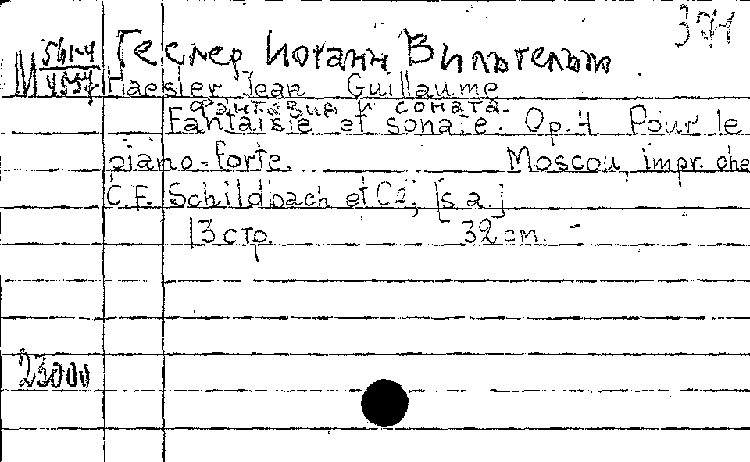 371
М 561-4 Геслер Иоганн Вильгельм.
4557 Haesler Jean Guillaume
Фантазия и соната.
Fantaisie et sonate. Op. 4 Pour le
piano-forte. Moscou, impr. che
C.F. Schildbach et Cé, [s.a.]
13 стр. 32 cm. -
23000